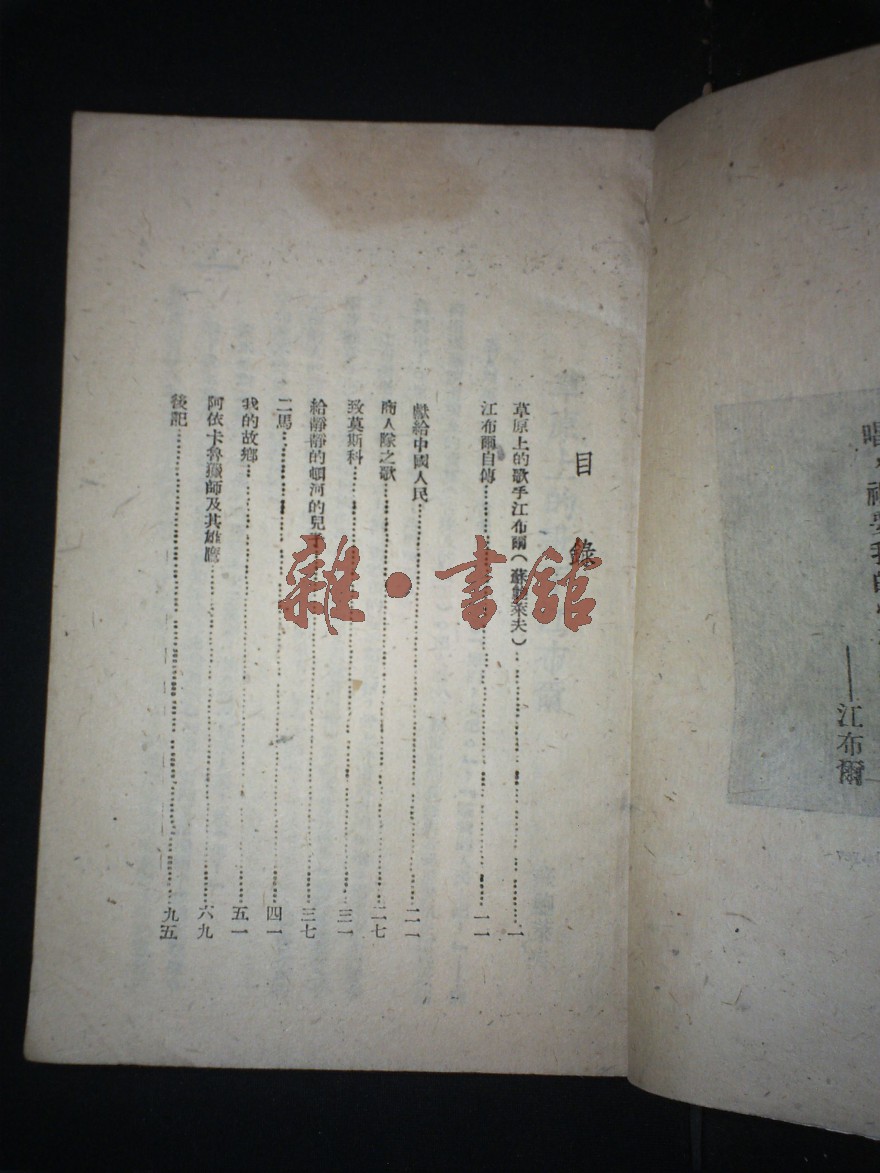 唱，
我的
——江布爾
目錄
草原上的歌手江布爾（蘇勃萊夫）……一
江布爾自傳……一一
獻給中國人民……二一
商人隊之歌……二七
致莫斯科……三一
給靜靜的頓河的兒子……三七
二馬……四一
我的故鄉……五一
阿依卡魯獵師及其雄鷹……六九
後記……九五
雜·書館